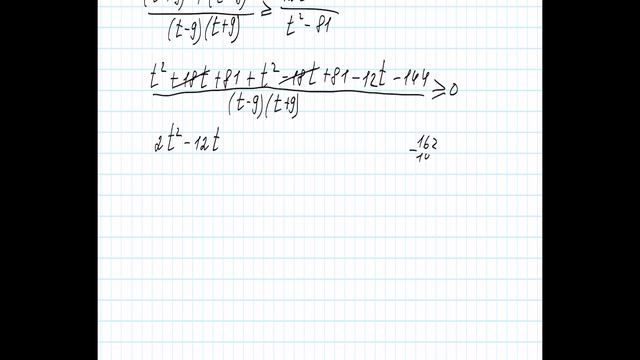 (t-9)(t+9) ≥ t² - 81
t² + 18t + 81 + t² - 18t + 81 - 12t - 144
(t-9)(t+9) ≥ 0
2t² - 12t
-162